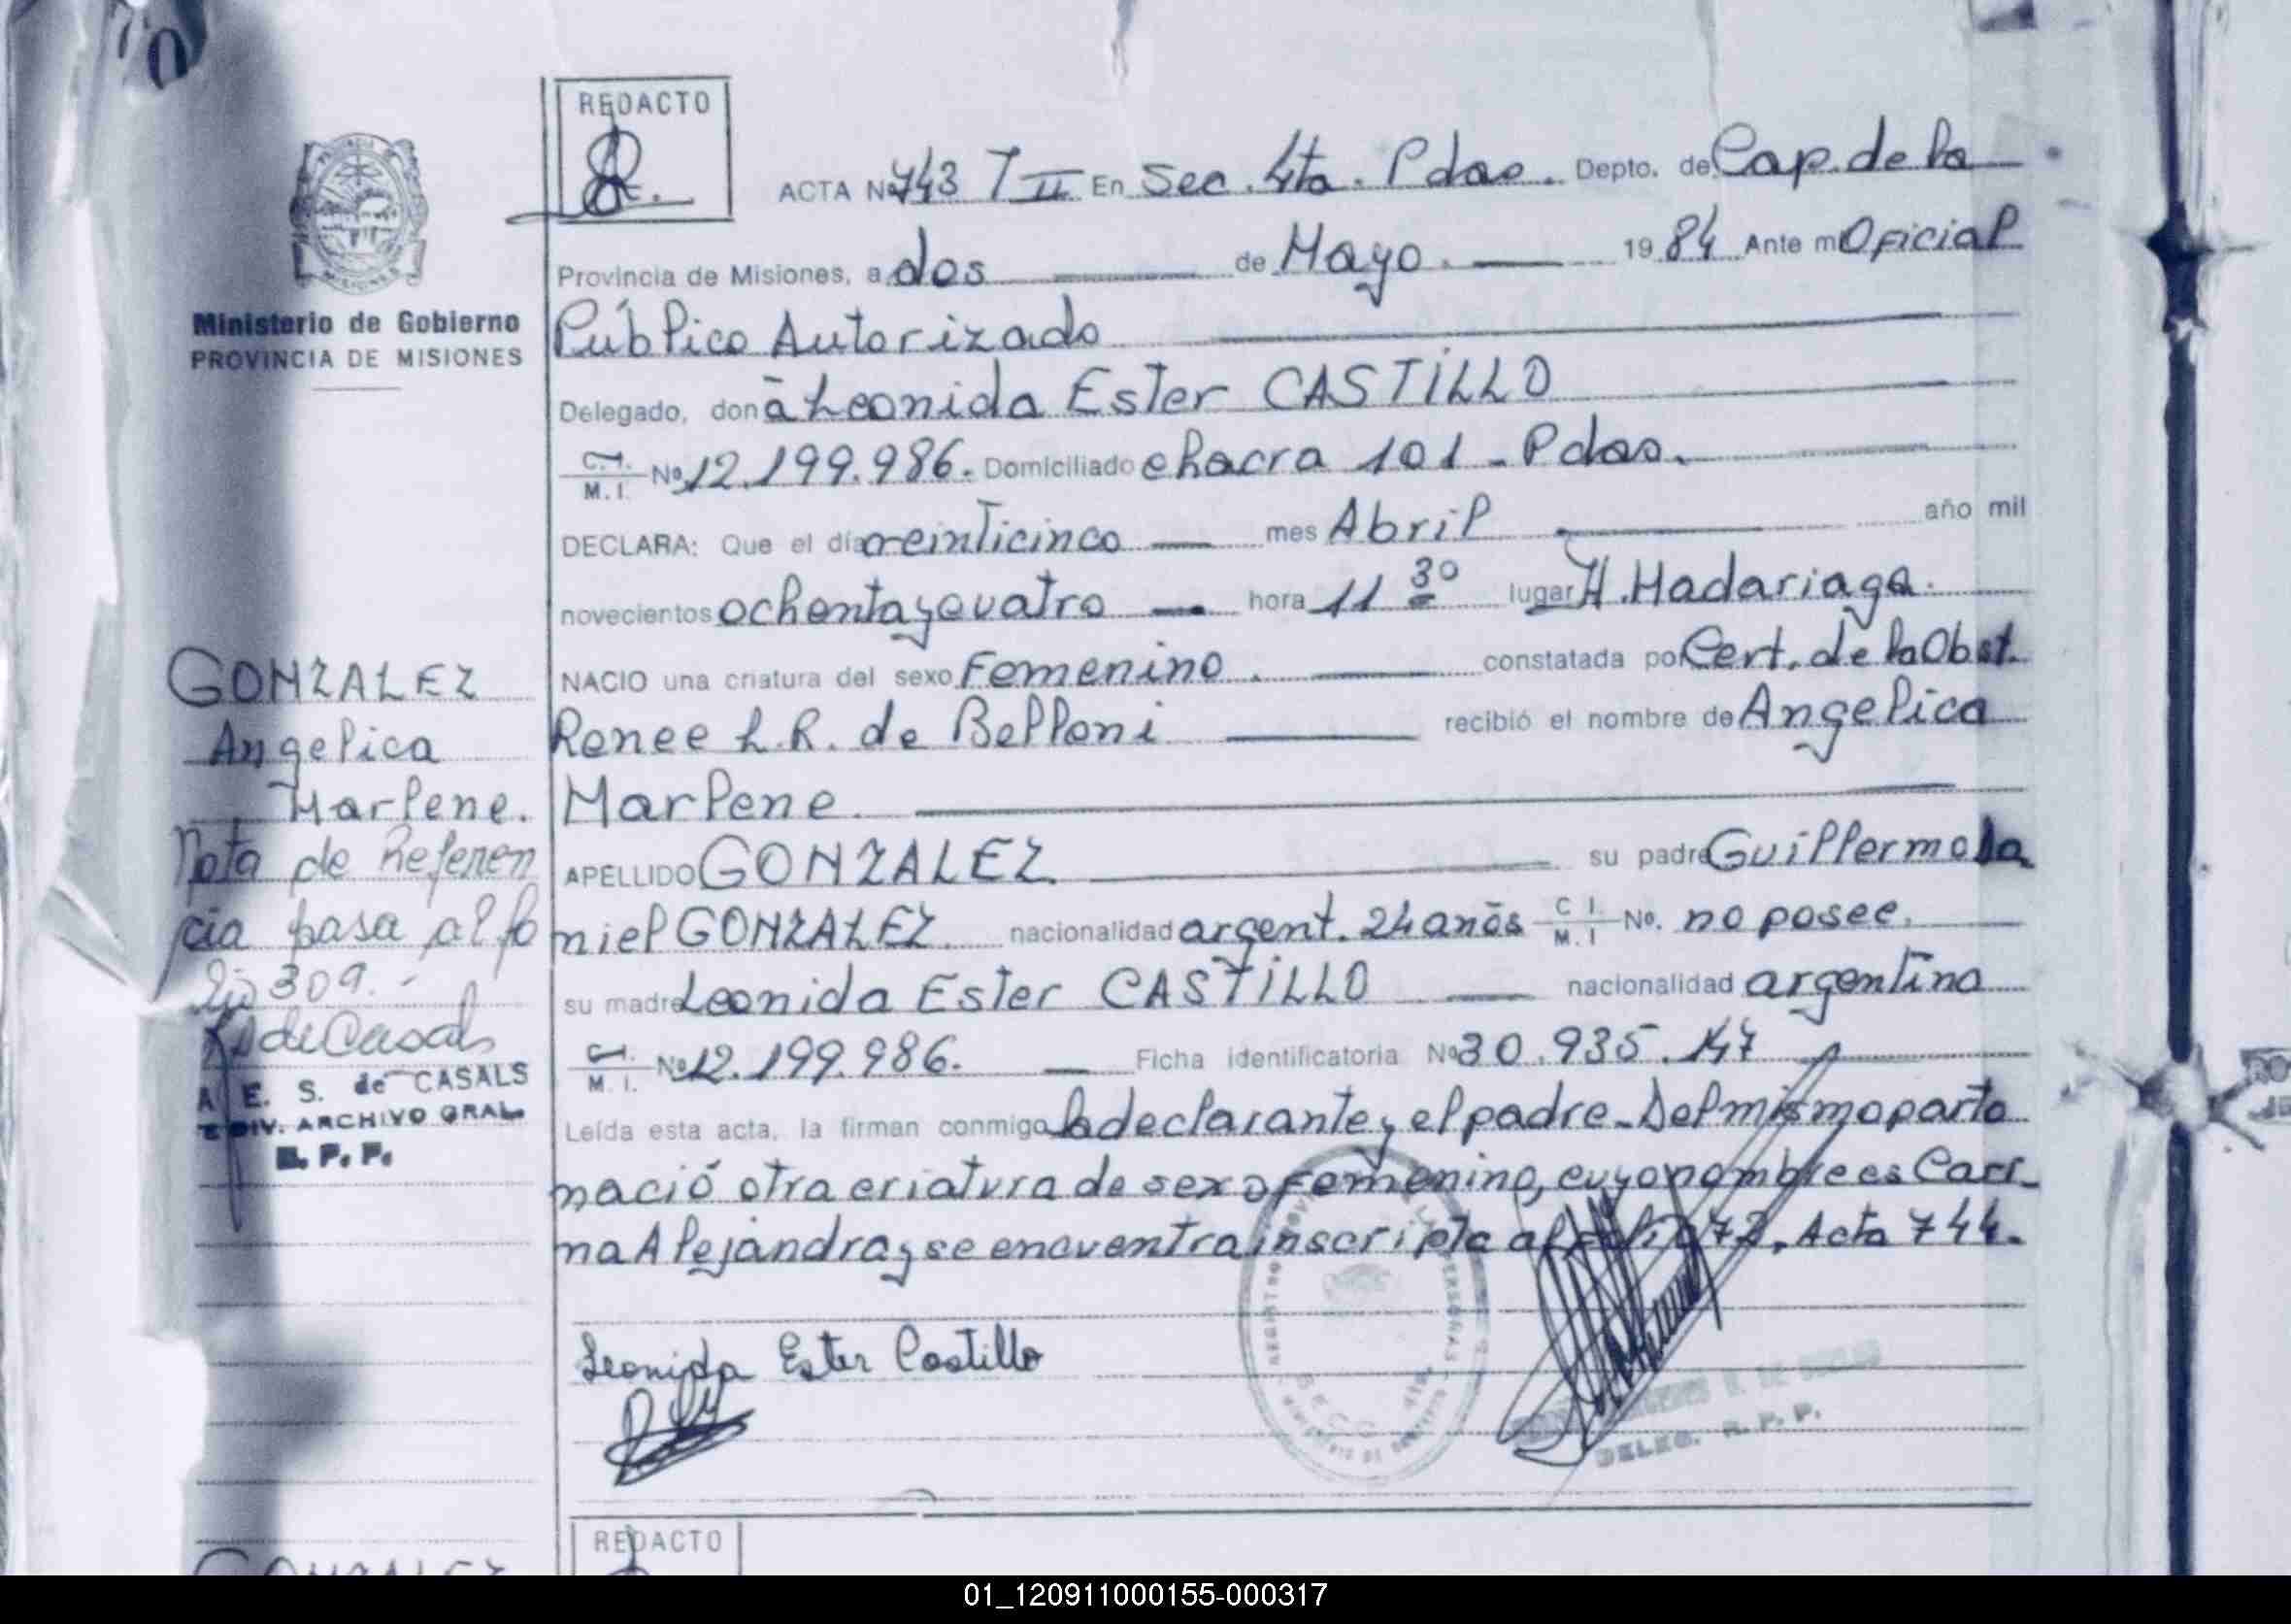 REDACTO
ACTA Nº 743 T II En Sec. 4ta. Pdas. Depto. de Cap. de la
Provincia de Misiones, a dos de Mayo. 1984 Ante mi Oficial
Público Autorizado
Delegado, don ā Leonida Ester CASTILLO
C.I. M.I. Nº 12.199.986. Domiciliado chacra 101 - Pdas.
DECLARA: Que el día veinticinco mes Abril año mil
novecientos ochenta y cuatro hora 11 30 lugar H. Madariaga.
NACIO una criatura del sexo Femenino. constatada por Cert. de la Obst.
Renee L.R. de Belloni recibió el nombre de Angelica
Marlene.
APELLIDO GONZALEZ su padre Guillermo Da
niel GONZALEZ. nacionalidad argent. 24 años C I M. I Nº. no posee.
su madre Leonida Ester CASTILLO nacionalidad argentina
C.I. M. I. Nº 12.199.986. Ficha identificatoria Nº 30.935.147
Leída esta acta, la firman conmigo la declarante y el padre - Del mismo parto
nació otra criatura de sexo femenino, cuyo nombre es Cari-
na Alejandra y se encuentra inscripta al folio 72, Acta 744.
Leonida Ester Castillo
DELEG. R. P. P.
Ministerio de Gobierno
PROVINCIA DE MISIONES
GONZALEZ
Angelica
Marlene.
Nota de Referen
cia pasa al fo
lio 309.-
de Casals
A E. S. de CASALS
DIV. ARCHIVO GRAL.
R. P. P.
REDACTO
GONZALEZ
01_120911000155-000317